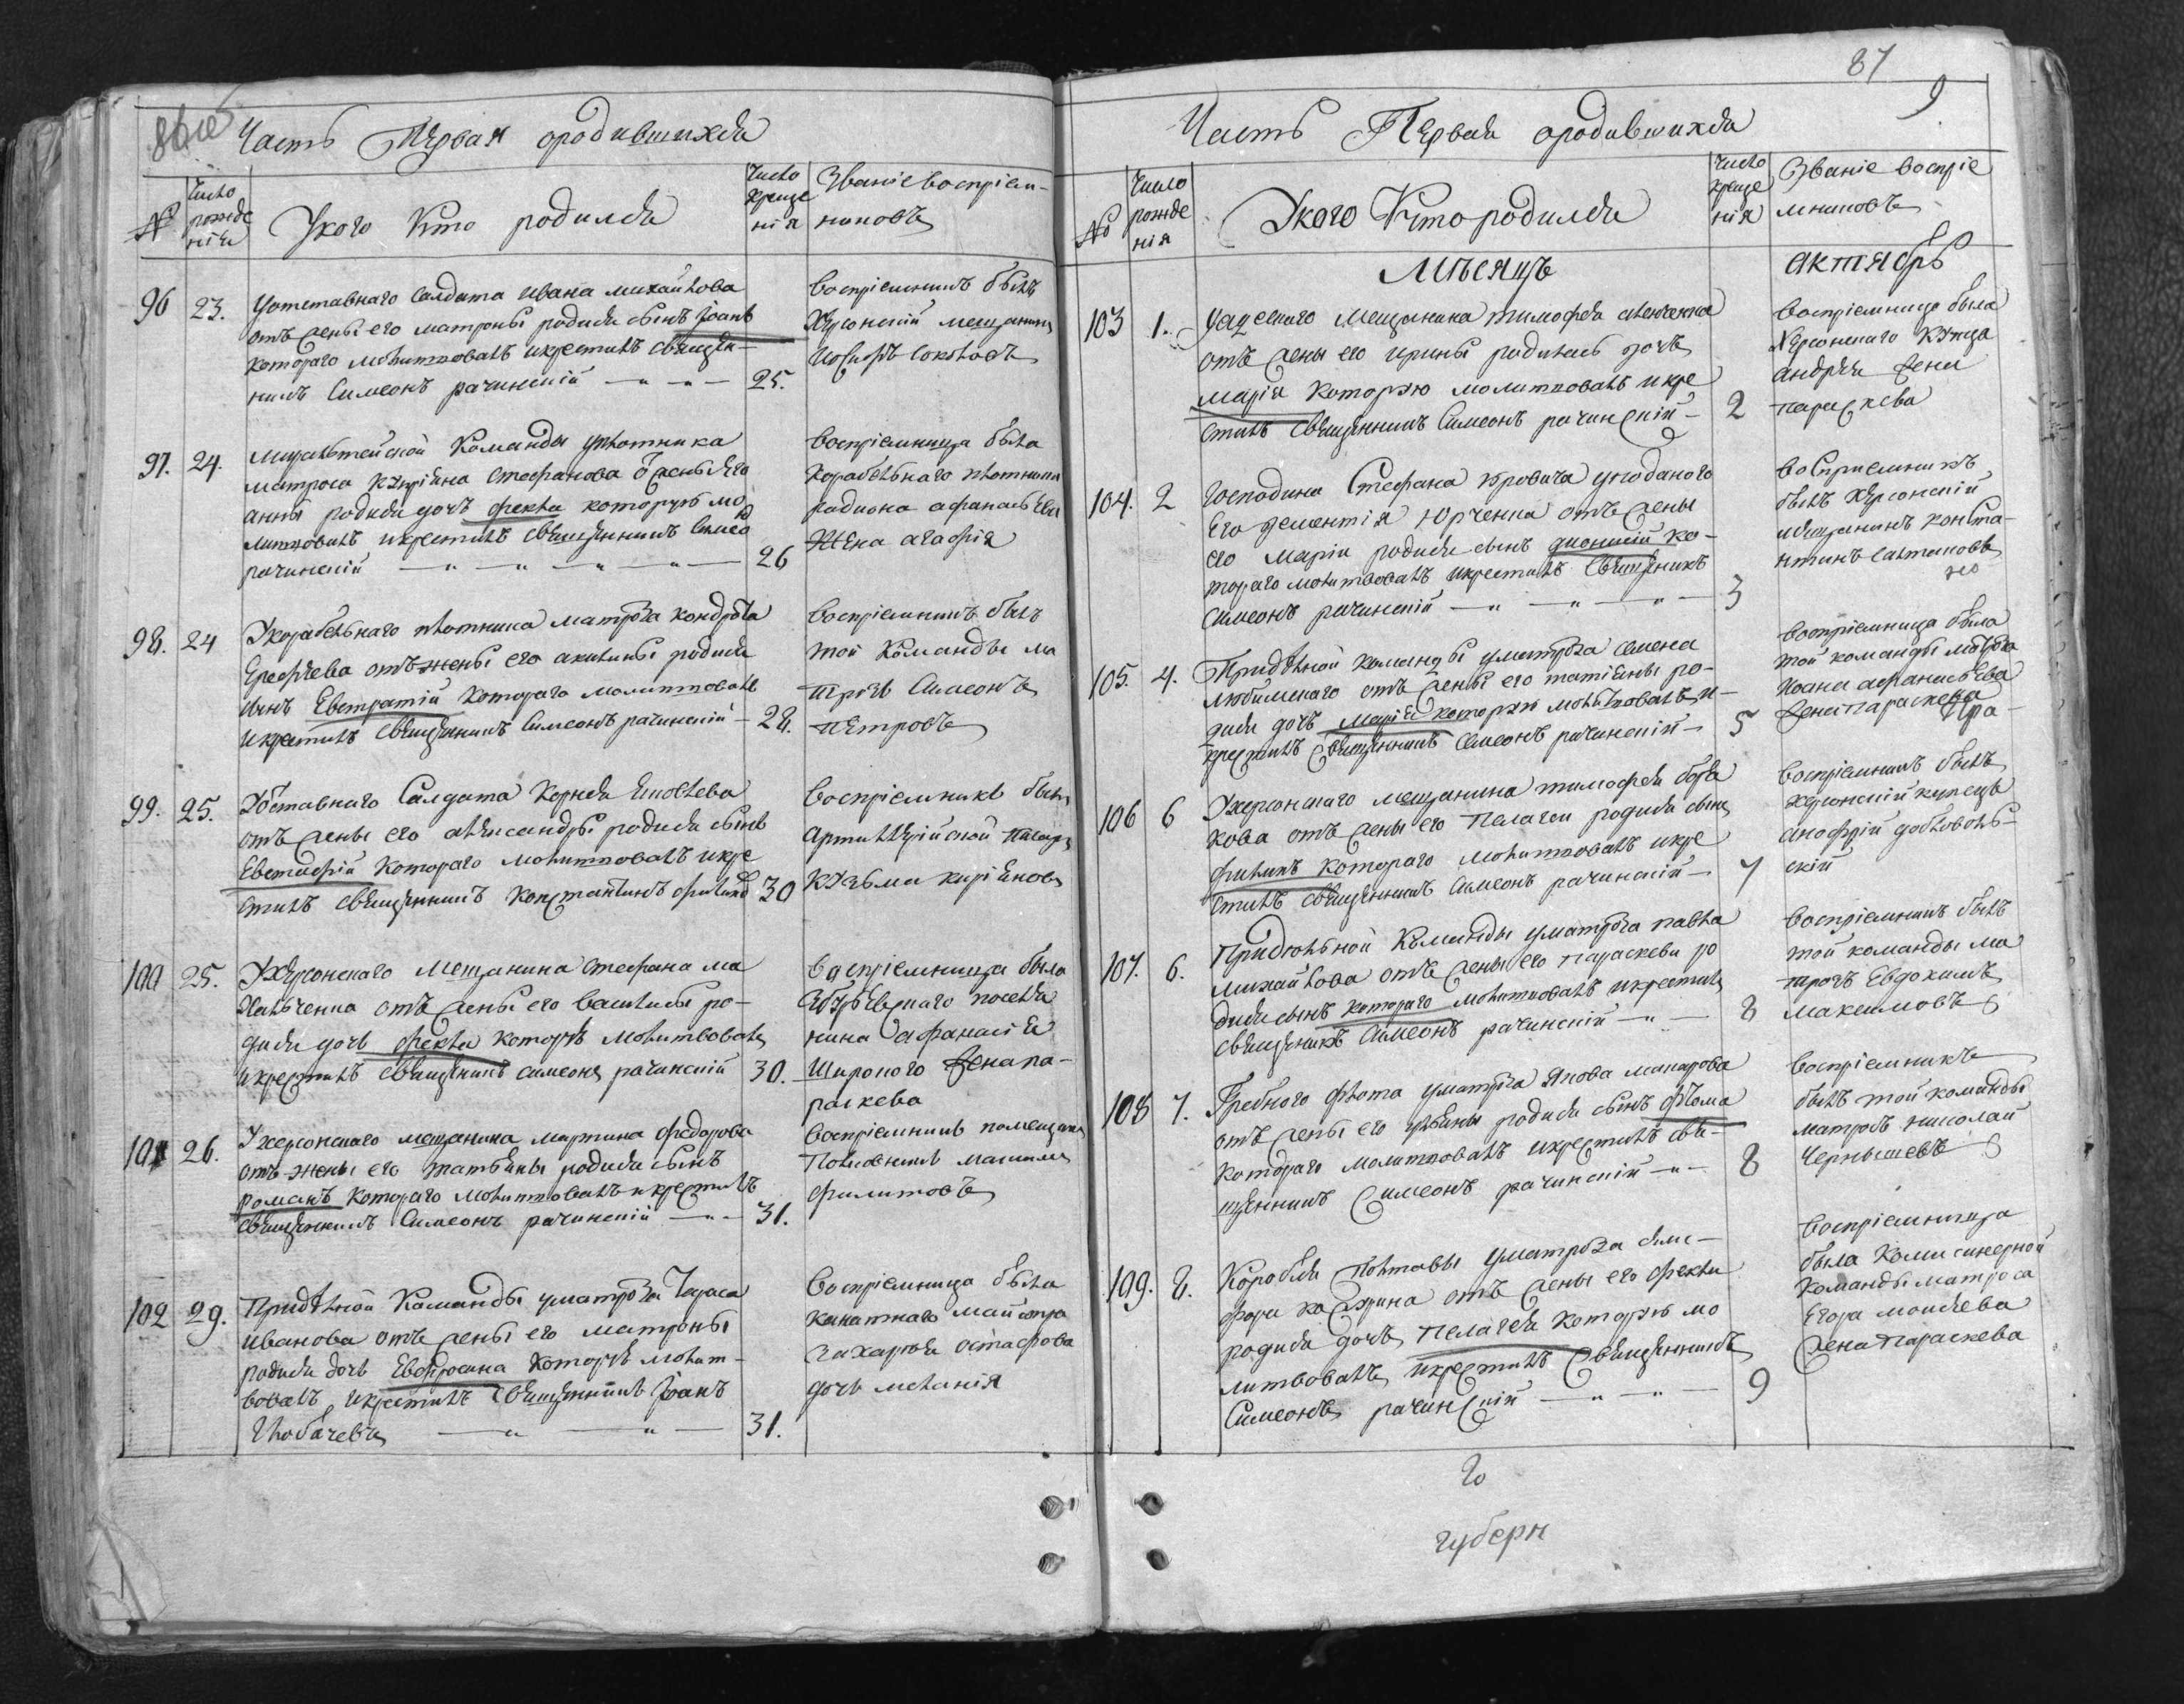 86 об
Часть Первая ородившихся
№
Число рожденія
Укого Кто родился
Число крещенія
Званіе воспріемниковъ
96
23.
Уотставнаго Салдата Ивана михайлова
отъ жены его матроны родися сынъ Іоанъ
котораго молитвовалъ икрестилъ священ-
никъ Симеонъ рачинскій
25.
Воспріемникъ былъ
Херсонскій мещанинъ
Иосифъ Соколовъ
97.
24.
Команды уплотника
матроса Кипріяна Стефанова ѿ жены его
анны родися дочь фекла которую мо
литвовалъ икрестилъ священникъ Симео
рачинскій
26
Воспріемница была
Корабельнаго плотника
радиона афанасьева
Жена агафія
98.
24
Укорабельнаго плотника матроза кондрата
Ерофеева отъ жены его акилины родися
сынъ Евстратій котораго молитвовалъ
икрестилъ священникъ Симеонъ рачинскій
28.
Воспріемникъ былъ
той Команды ма
трозъ Симеонъ
Петровъ
99.
25.
Уотставнаго Салдата Корнея
отъ жены его александры родися сынъ
Евстафій котораго молитвовалъ икре
стилъ священникъ Константинъ
30
Воспріемникъ былъ
Артиллерійской писарь
Кузьма киріяновъ
100
25.
Ухерсонскаго Мещанина стефана ма
хальченка отъ жены его василисы ро-
дися дочь фекла которую молитвовалъ
икрестилъ священникъ симеонъ рачинскій
30.
Воспріемница была
поселя
нина афанасія
Широкого жена па-
раскева
101
26.
Ухерсонскаго мещанина мартина федорова
отъ жены его татьяны родися сынъ
романъ котораго молитвовалъ икрестилъ
священникъ Симеонъ рачинскій
31.
Воспріемникъ помещикъ
Полковникъ максимъ
филиповъ
102
29.
Придѣльной Команды уматроза Тараса
иванова отъ жены его матроны
родися дочь Евфросина которую молит-
вовалъ икрестилъ священникъ Іоанъ
31.
Воспріемница была
канатнаго майстра
захарія остафова
дочь меланія
87
9
Часть Первая ородившихся
№
Число рожденія
Укого Кто родился
Число крещенія
Званіе воспріемниковъ
Мѣсяцъ
актябрь
103
1.
мещанина тимофея
отъ жены его ирины родилась дочь
марія которую молитвовалъ икре
стилъ священникъ Симеонъ рачинскій
2
Воспріемница была
Херсонскаго купца
андрея жена
параскева
104.
2
Господина Стефана
его дементія Юрченка отъ жены
его маріи родися сынъ дионисій ко-
тораго молитвовалъ икрестилъ священникъ
Симеонъ рачинскій
3
Воспріемникъ
былъ херсонскій
мещанинъ конста-
нтинъ
105.
4.
Придѣльной команды уматроза семена
любимскаго отъ жены его татіяны ро-
дися дочь марія которую молитвовалъ и-
крестилъ священникъ Симеонъ рачинскій
5
Воспріемница была
той команды матроза
Иоана афанасьева
жена параскева
106
6
Ухерсонскаго мещанина тимофея
кова отъ жены его Пелагеи родися сынъ
филипъ котораго молитвовалъ икре
стилъ священникъ Симеонъ рачинскій
7
Воспріемникъ былъ
херсонскій купецъ
анофрій
скій
107.
6.
Придѣльной Команды уматроза павла
михайлова отъ жены его параскевы ро
дися сынъ котораго молитвовалъ икрестилъ
священникъ Симеонъ рачинскій
8
Воспріемникъ былъ
той команды ма
трозъ Евдокимъ
Максимовъ
108
7.
Гребного флота уматроза якова макарова
отъ жены его родися сынъ фома
котораго молитвовалъ икрестилъ свя-
щенникъ Симеонъ рачинскій
8
Воспріемникъ
былъ той команды
матрозъ николай
Чернышевъ
109.
8.
Корабля Полтавы уматроза
отъ жены его феклы
родися дочь Пелагея которую мо
литвовалъ икрестилъ священникъ
Симеонъ рачинскій
9
Воспріемница
была
команды матроса
Егора моисеева
Жена Параскева
губерн